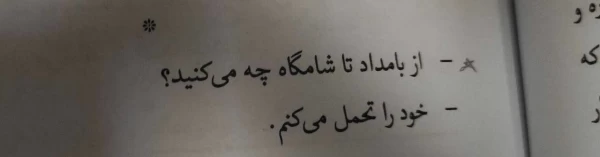 - از بامداد تا شامگاه چه می‌کنید؟
- خود را تحمل می‌کنم.
ه و
که
ار